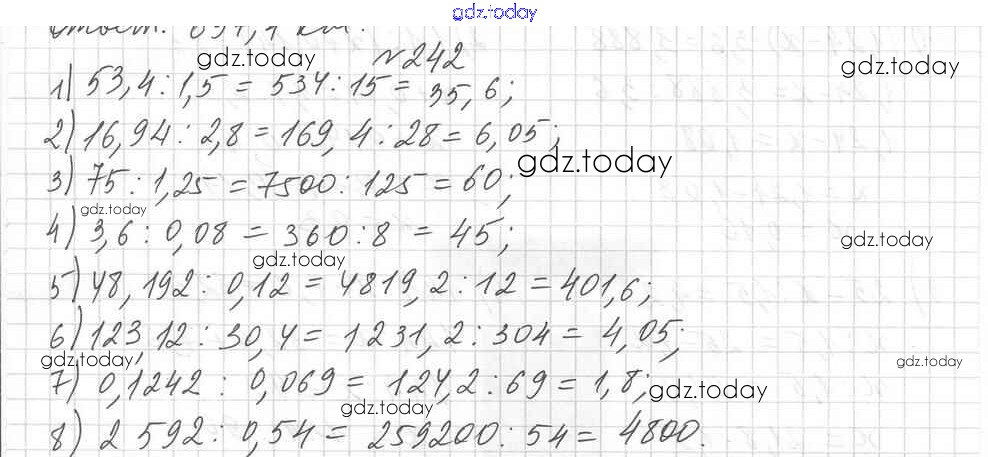 gdz.today
Ответ: 
№242
1) 53,4 : 1,5 = 534 : 15 = 35,6;
2) 16,94 : 2,8 = 169,4 : 28 = 6,05;
3) 75 : 1,25 = 7500 : 125 = 60;
4) 3,6 : 0,08 = 360 : 8 = 45;
5) 48,192 : 0,12 = 4819,2 : 12 = 401,6;
6) 123,12 : 30,4 = 1231,2 : 304 = 4,05;
7) 0,1242 : 0,069 = 124,2 : 69 = 1,8;
8) 2592 : 0,54 = 259200 : 54 = 4800.
gdz.today
gdz.today
gdz.today
gdz.today
gdz.today
gdz.today
gdz.today
gdz.today
gdz.today
gdz.today